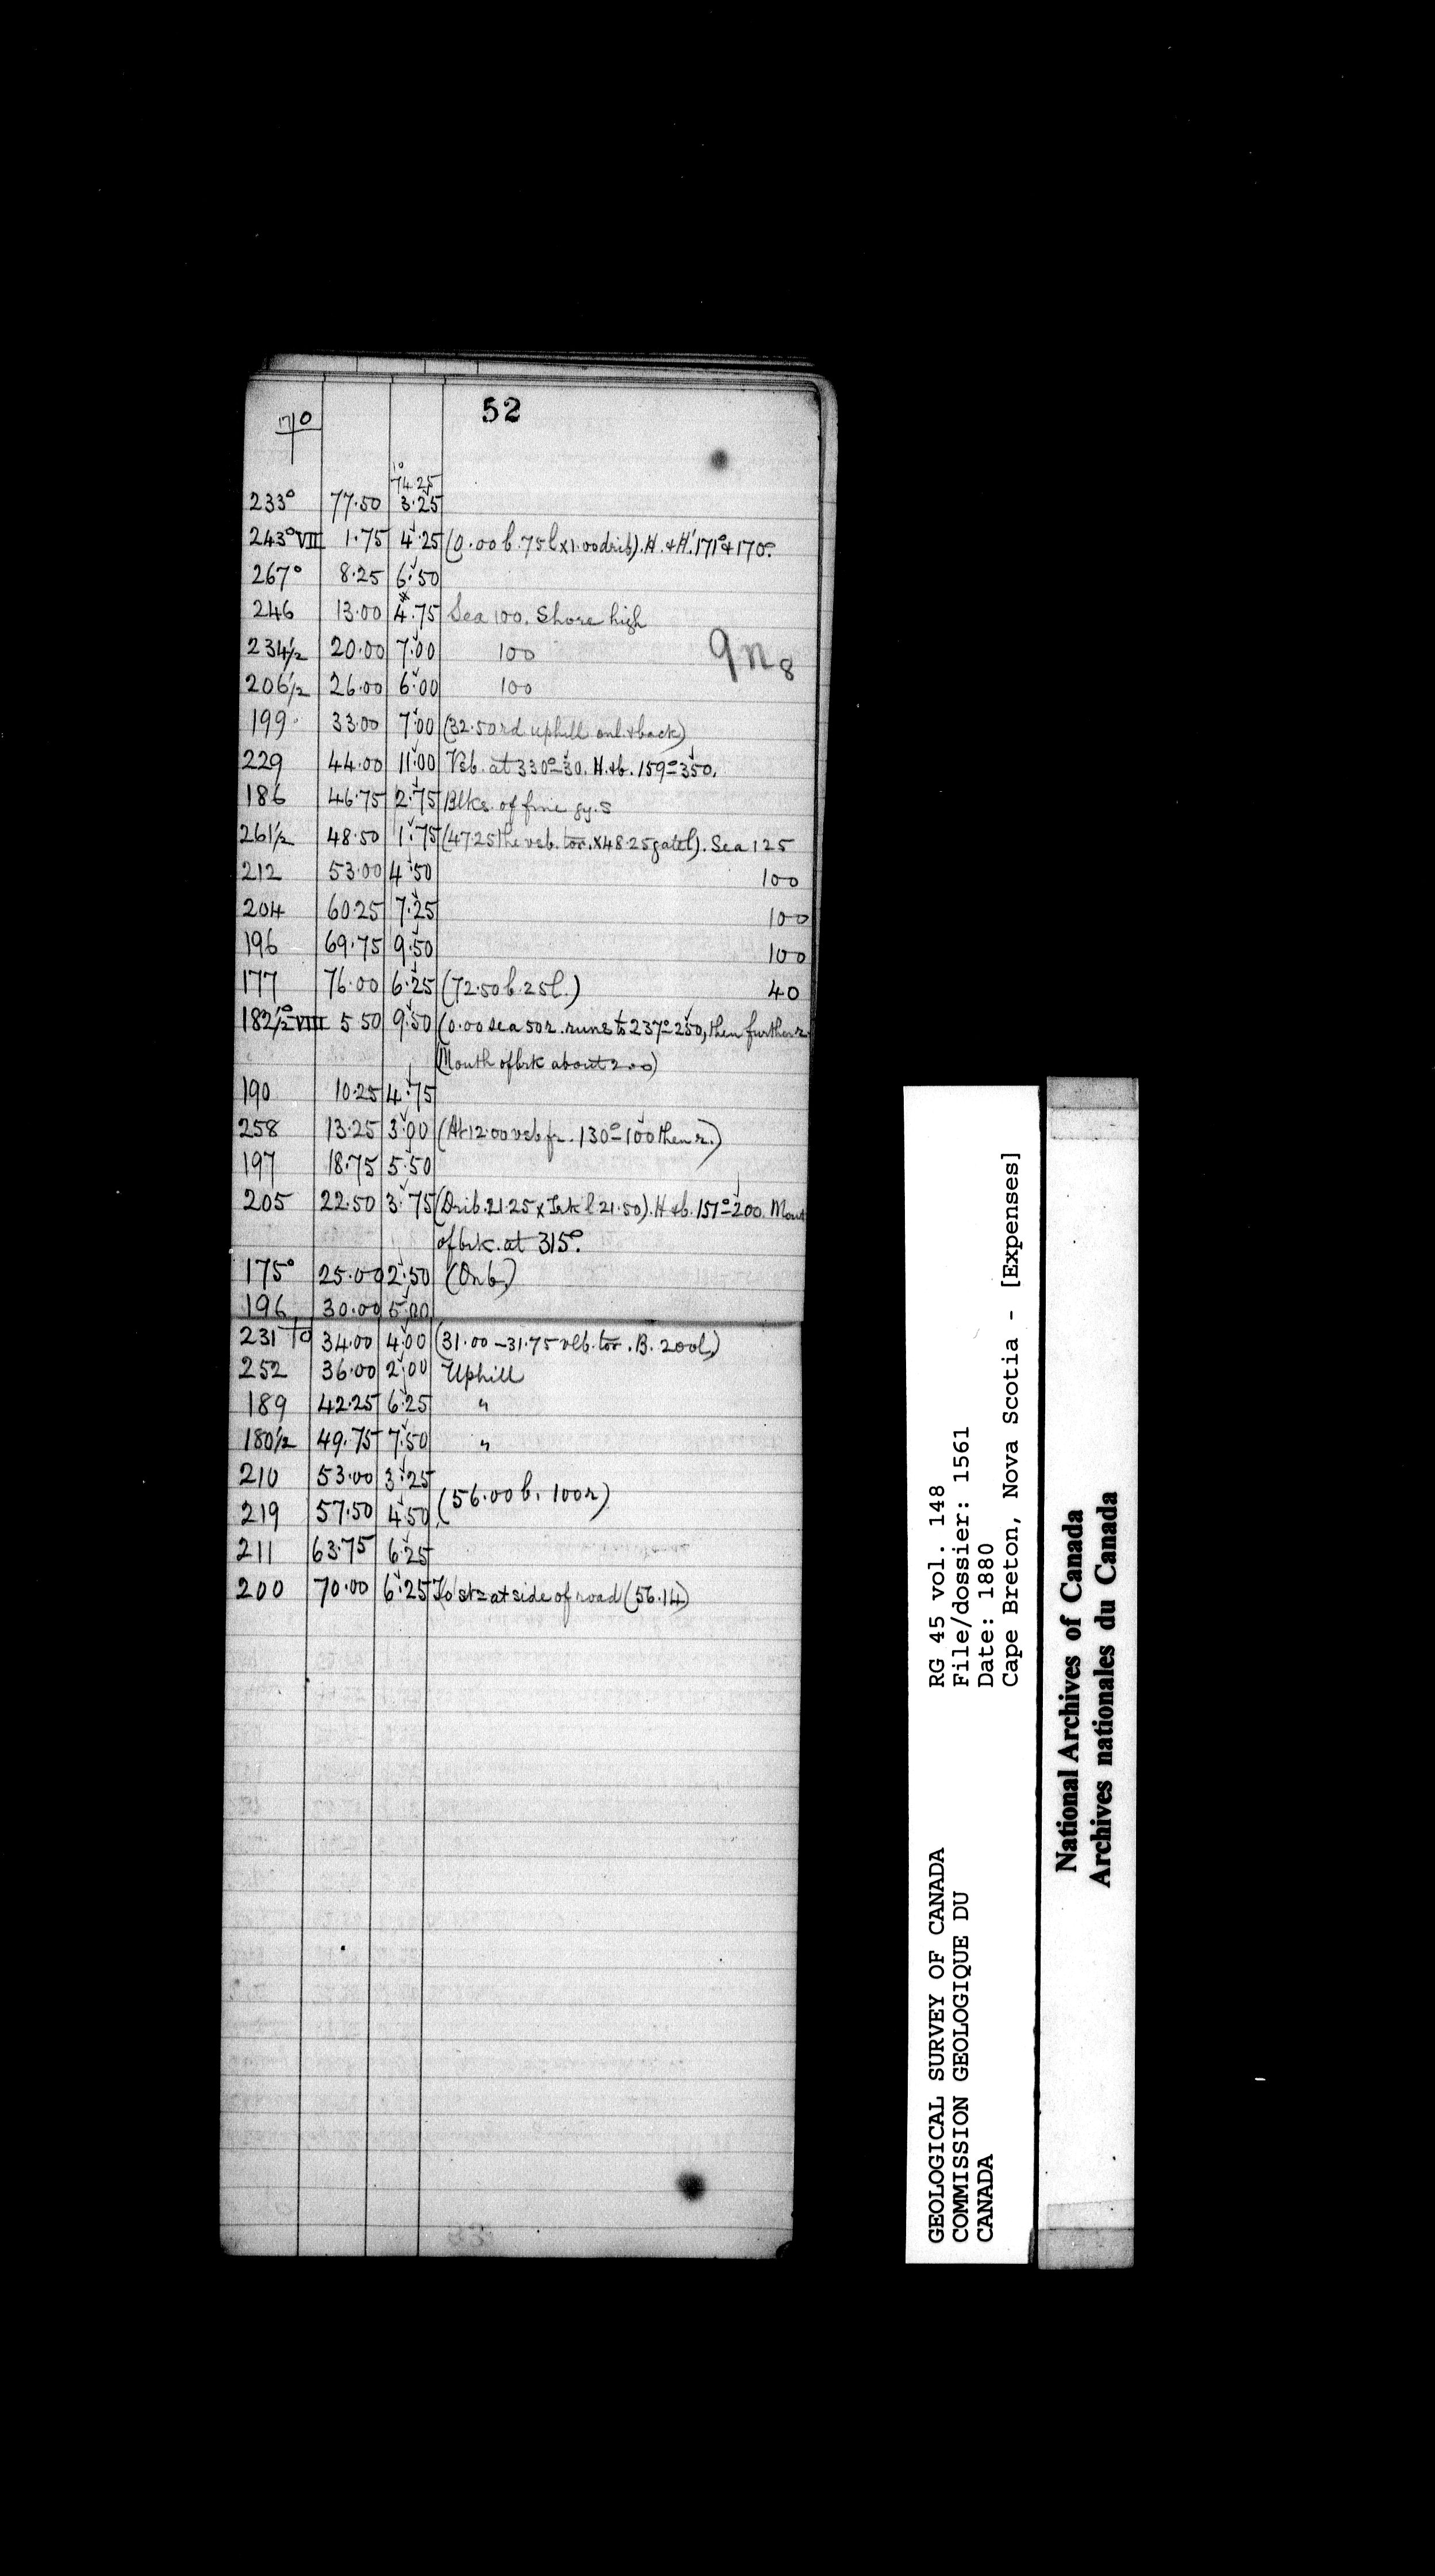 52
170
10
74.25
233° 77.50 3.25
243° VII 1.75 4.25 (0.00 b. 75 l x 1.00 drib). H. & H'. 171° & 170°.
267° 8.25 6.50
246 13.00 4.75 Sea 100. Shore high
234½ 20.00 7.00 100
9n8
206½ 26.00 6.00 100
199 33.00 7.00 (32.50 rd uphill on l. & back)
229 44.00 11.00 Vsb. at 330°–30. H. & b. 159°–350.
186 46.75 2.75 Blks. of fine gy. s
261½ 48.50 1.75 (47.25 the vsb. tor. x 48.25 gate l). Sea 125
212 53.00 4.50 100
204 60.25 7.25 100
196 69.75 9.50 100
177 76.00 6.25 (72.50 b. 25 l.) 40
182½° VIII 5.50 9.50 (0.00 sea 50 r. runs to 237°–250, then further r.
Mouth of brk about 200)
190 10.25 4.75
258 13.25 3.00 (At 12.00 vsb fr. 130°–100 then r.)
197 18.75 5.50
205 22.50 3.75 (Drib. 21.25 x brk l 21.50). H & b. 151°–200. Mout
of brk. at 315°.
175° 25.00 2.50 (On b.)
196 30.00 5.00
231 to 34.00 4.00 (31.00–31.75 vlb. tor. B. 200 l.)
252 36.00 2.00 Uphill
189 42.25 6.25 "
180½ 49.75 7.50 "
210 53.00 3.25
219 57.50 4.50 (56.00 b. 100 r)
211 63.75 6.25
200 70.00 6.25 To stn at side of road (56.14)
GEOLOGICAL SURVEY OF CANADA RG 45 vol. 148
COMMISSION GEOLOGIQUE DU File/dossier: 1561
CANADA Date: 1880
Cape Breton, Nova Scotia - [Expenses]
National Archives of Canada
Archives nationales du Canada